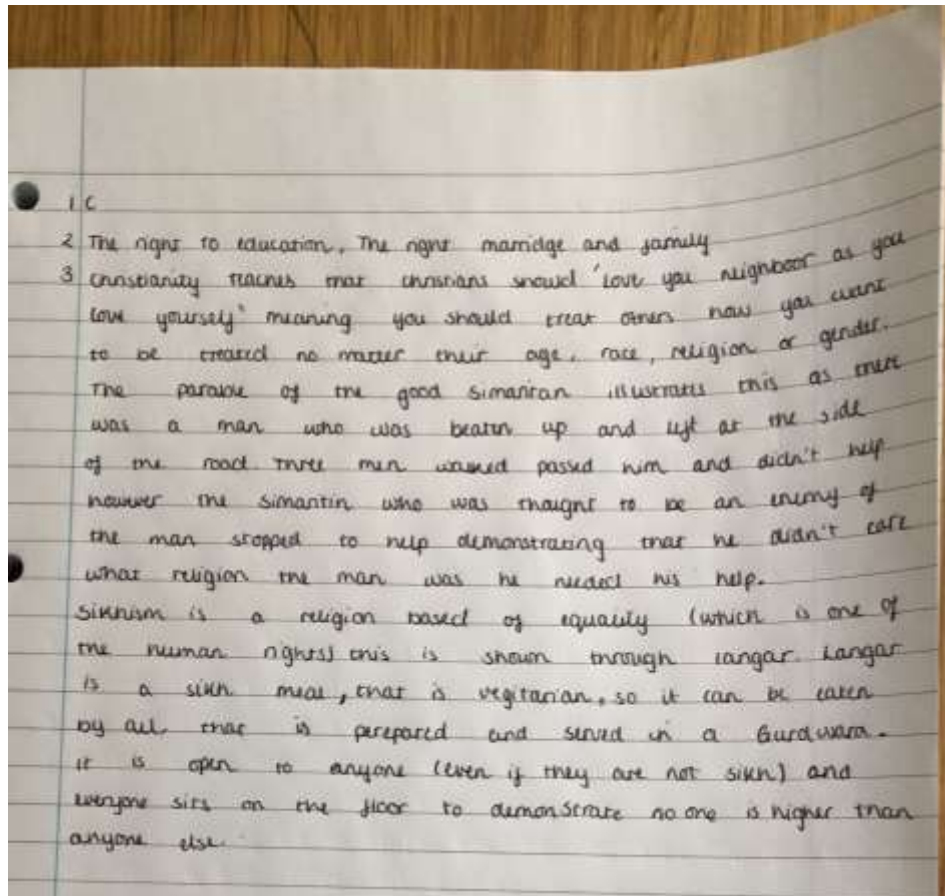 1 C
2 The right to education, The right marridge and family
3 Christianity teaches that christians should 'love you neighboor as you
love yourself" meaning you should treat others how you want
to be treated no matter their age, race, religion or gender.
The parable of the good Simaritan illustrates this as there
was a man who was beaten up and left at the side
of the road three men walked passed him and didn't help
however the simantin who was thaught to be an enemy of
the man stopped to help demonstrating that he didn't care
what religion the man was he needed his help.
Sikhism is a religion based of equality (which is one of
the human rights) this is shown through langar. Langar
is a sikh meal, that is vegitarian, so it can be eaten
by all, that is perepared and served in a Gurdwara.
it is open to anyone (even if they are not sikh) and
everyone sits on the floor to demonstrate no one is higher than
anyone else.